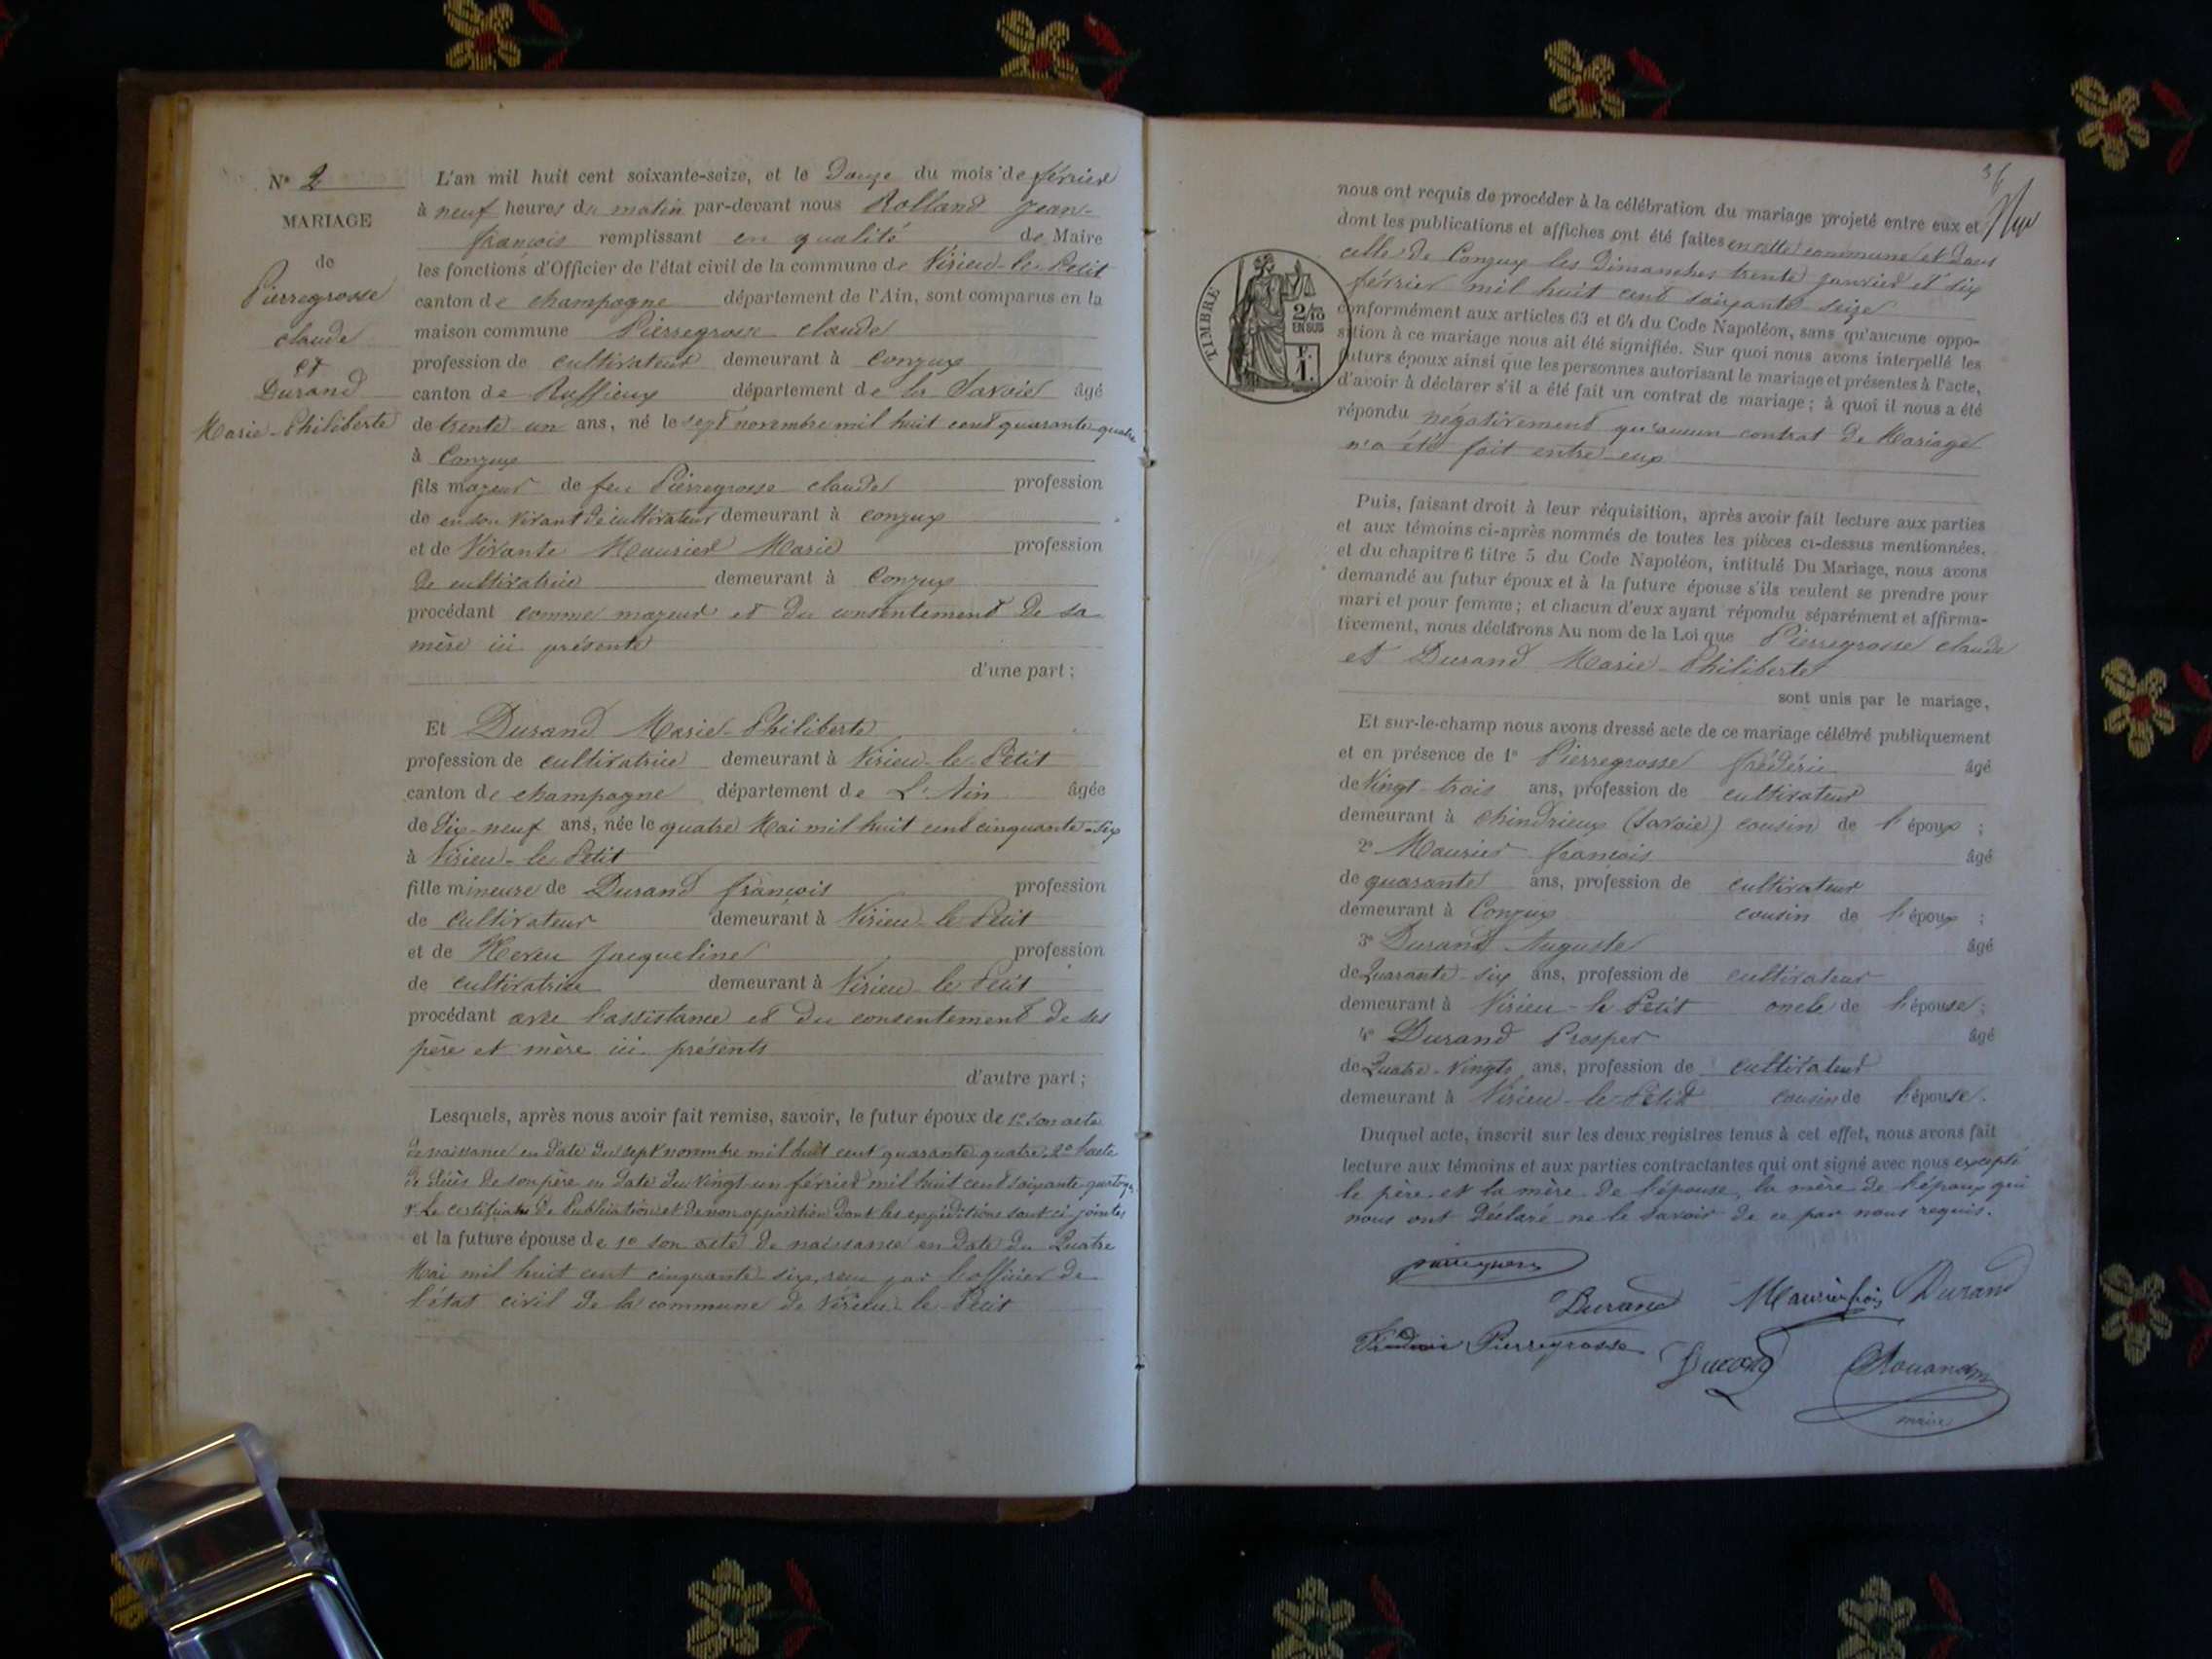 N° 2
MARIAGE
de
Pierregrosse
claude
et
Durand
Marie-Philiberte
L'an mil huit cent soixante-seize, et le Douze du mois de février
à neuf heures du matin par-devant nous Rolland Jean-
françois remplissant en qualité de Maire
les fonctions d'Officier de l'état civil de la commune de Virieu-le-Petit
canton de champagne département de l'Ain, sont comparus en la
maison commune Pierregrosse claude
profession de cultivateur demeurant à Conzux
canton de Ruffieux département de la Savoie âgé
de trente un ans, né le sept novembre mil huit cent quarante-quatre
à Conzux
fils majeur de feu Pierregrosse claude profession
de en son Vivant de cultivateur demeurant à conzux
et de Vivante Maurier Marie profession
de cultivatrice demeurant à Conzux
procédant comme majeur et du consentement de sa
mère ici présente
d'une part ;
Et Durand Marie-Philiberte
profession de cultivatrice demeurant à Virieu-le-Petit
canton de champagne département de L'Ain âgée
de Dix-neuf ans, née le quatre Mai mil huit cent cinquante-six
à Virieu-le-Petit
fille mineure de Durand françois profession
de cultivateur demeurant à Virieu-le-Petit
et de Jacqueline profession
de cultivatrice demeurant à Virieu-le-Petit
procédant avec l'assistance et du consentement de ses
père et mère ici présents
d'autre part ;
Lesquels, après nous avoir fait remise, savoir, le futur époux de 1° son acte
de naissance en date du sept novembre mil huit cent quarante quatre, 2° l'acte
de décès de son père en date du Vingt-un février mil huit cent soixante-quatorze
Le certificat de Publication et de non opposition Dont les expéditions sont ci-jointes
et la future épouse de 1° son acte de naissance en date du Quatre
Mai mil huit cent cinquante-six, reçu par l'officier de
l'état civil de la commune de Virieu-le-Petit
36
nous ont requis de procéder à la célébration du mariage projeté entre eux et
dont les publications et affiches ont été faites en cette commune et dans
celle de Conzux les Dimanches trente janvier et six
février mil huit cent soixante seize
conformément aux articles 63 et 64 du Code Napoléon, sans qu'aucune oppo-
sition à ce mariage nous ait été signifiée. Sur quoi nous avons interpellé les
futurs époux ainsi que les personnes autorisant le mariage et présentes à l'acte,
d'avoir à déclarer s'il a été fait un contrat de mariage ; à quoi il nous a été
répondu négativement qu'aucun contrat de Mariage
n'a été fait entre eux
TIMBRE
2/10
EN SUS
F.
1.
Puis, faisant droit à leur réquisition, après avoir fait lecture aux parties
et aux témoins ci-après nommés de toutes les pièces ci-dessus mentionnées,
et du chapitre 6 titre 5 du Code Napoléon, intitulé Du Mariage, nous avons
demandé au futur époux et à la future épouse s'ils veulent se prendre pour
mari et pour femme ; et chacun d'eux ayant répondu séparément et affirma-
tivement, nous déclarons Au nom de la Loi que Pierregrosse claude
et Durand Marie-Philiberte
sont unis par le mariage,
Et sur-le-champ nous avons dressé acte de ce mariage célébré publiquement
et en présence de 1° Pierregrosse frédéric âgé
de Vingt-trois ans, profession de cultivateur
demeurant à chindrieux (Savoie) cousin de l'époux ;
2° Maurier françois âgé
de quarante ans, profession de cultivateur
demeurant à Conzux cousin de l'époux ;
3° Durand Auguste âgé
de Quarante-six ans, profession de cultivateur
demeurant à Virieu-le-Petit oncle de l'épouse ;
4° Durand Prosper âgé
de Quatre-Vingts ans, profession de cultivateur
demeurant à Virieu-le-Petit cousin de l'épouse.
Duquel acte, inscrit sur les deux registres tenus à cet effet, nous avons fait
lecture aux témoins et aux parties contractantes qui ont signé avec nous excepté
le père et la mère de l'épouse, la mère de l'époux qui
nous ont Déclaré ne le savoir de ce par nous requis.
Durand Maurier fçois Durand
Pierregrosse Durand
maire